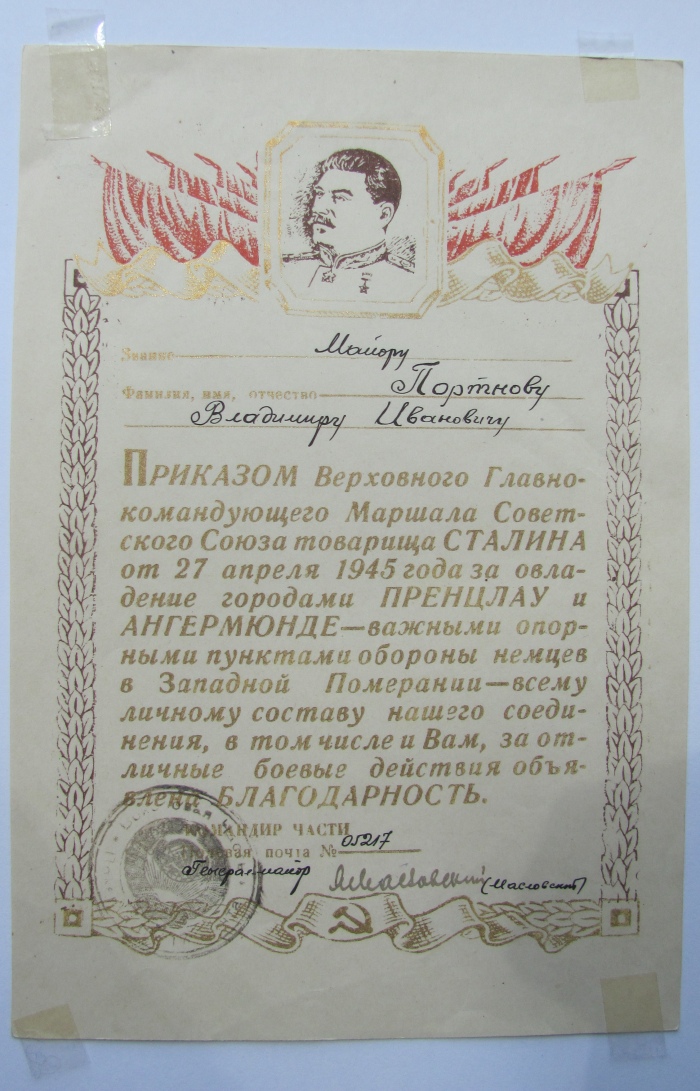 Звание Майору
Фамилия, имя, отчество Портнову
Владимиру Ивановичу
ПРИКАЗОМ Верховного Главно-
командующего Маршала Совет-
ского Союза товарища СТАЛИНА
от 27 апреля 1945 года за овла-
дение городами ПРЕНЦЛАУ и
АНГЕРМЮНДЕ—важными опор-
ными пунктами обороны немцев
в Западной Померании—всему
личному составу нашего соеди-
нения, в том числе и Вам, за от-
личные боевые действия объя-
влена БЛАГОДАРНОСТЬ.
КОМАНДИР ЧАСТИ
Полевая почта № 05217
Генерал-майор (Масловский)